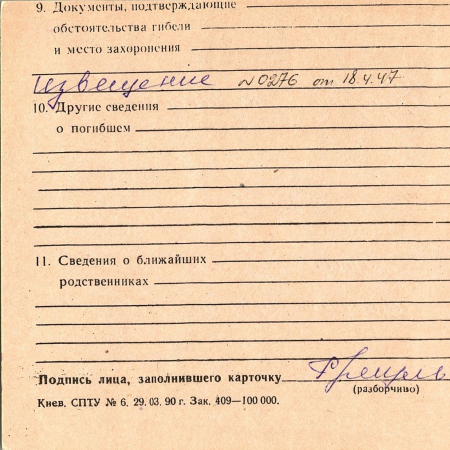 9. Документы, подтверждающие
обстоятельства гибели
и место захоронения
Извещение №0276 от 18.4.47
10. Другие сведения
о погибшем
11. Сведения о ближайших
родственниках
Подпись лица, заполнившего карточку
(разборчиво)
Киев. СПТУ № 6. 29. 03. 90 г. Зак. 409—100 000.